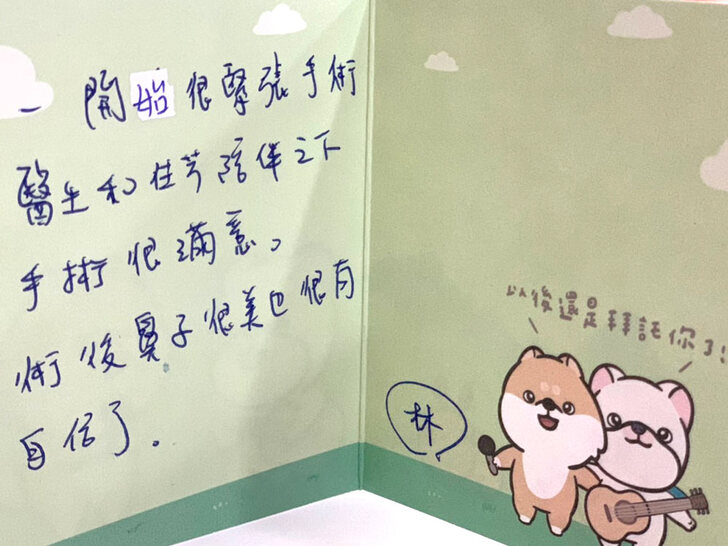 一開始很緊張手術
醫生和佳芳陪伴之下
手術很滿意。
術後鼻子很美也很有
自信了。
以後還是拜託你了!
林